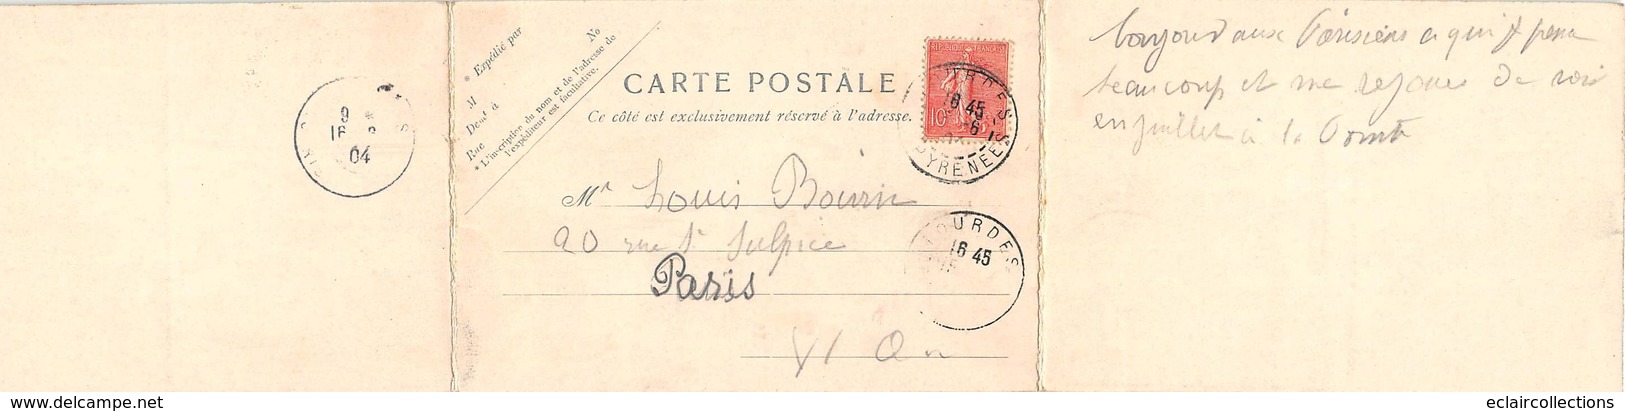 9
16
04
* Expédié par
M
Demt à
Rue
No
* L'inscription du nom et de l'adresse de
l'expéditeur est facultative.
CARTE POSTALE
Ce côté est exclusivement réservé à l'adresse.
REPUBLIQUE FRANÇAISE
10c
LOURDES
16 45
PYRENEES
Mr Louis Bourn
20 rue St Sulpice
Paris
VI
LOURDES
16 45
bonjour aux Parisiens a qui je pense
beaucoup et me rejouis de voir
en juillet à la
www.delcampe.net
eclaircollections